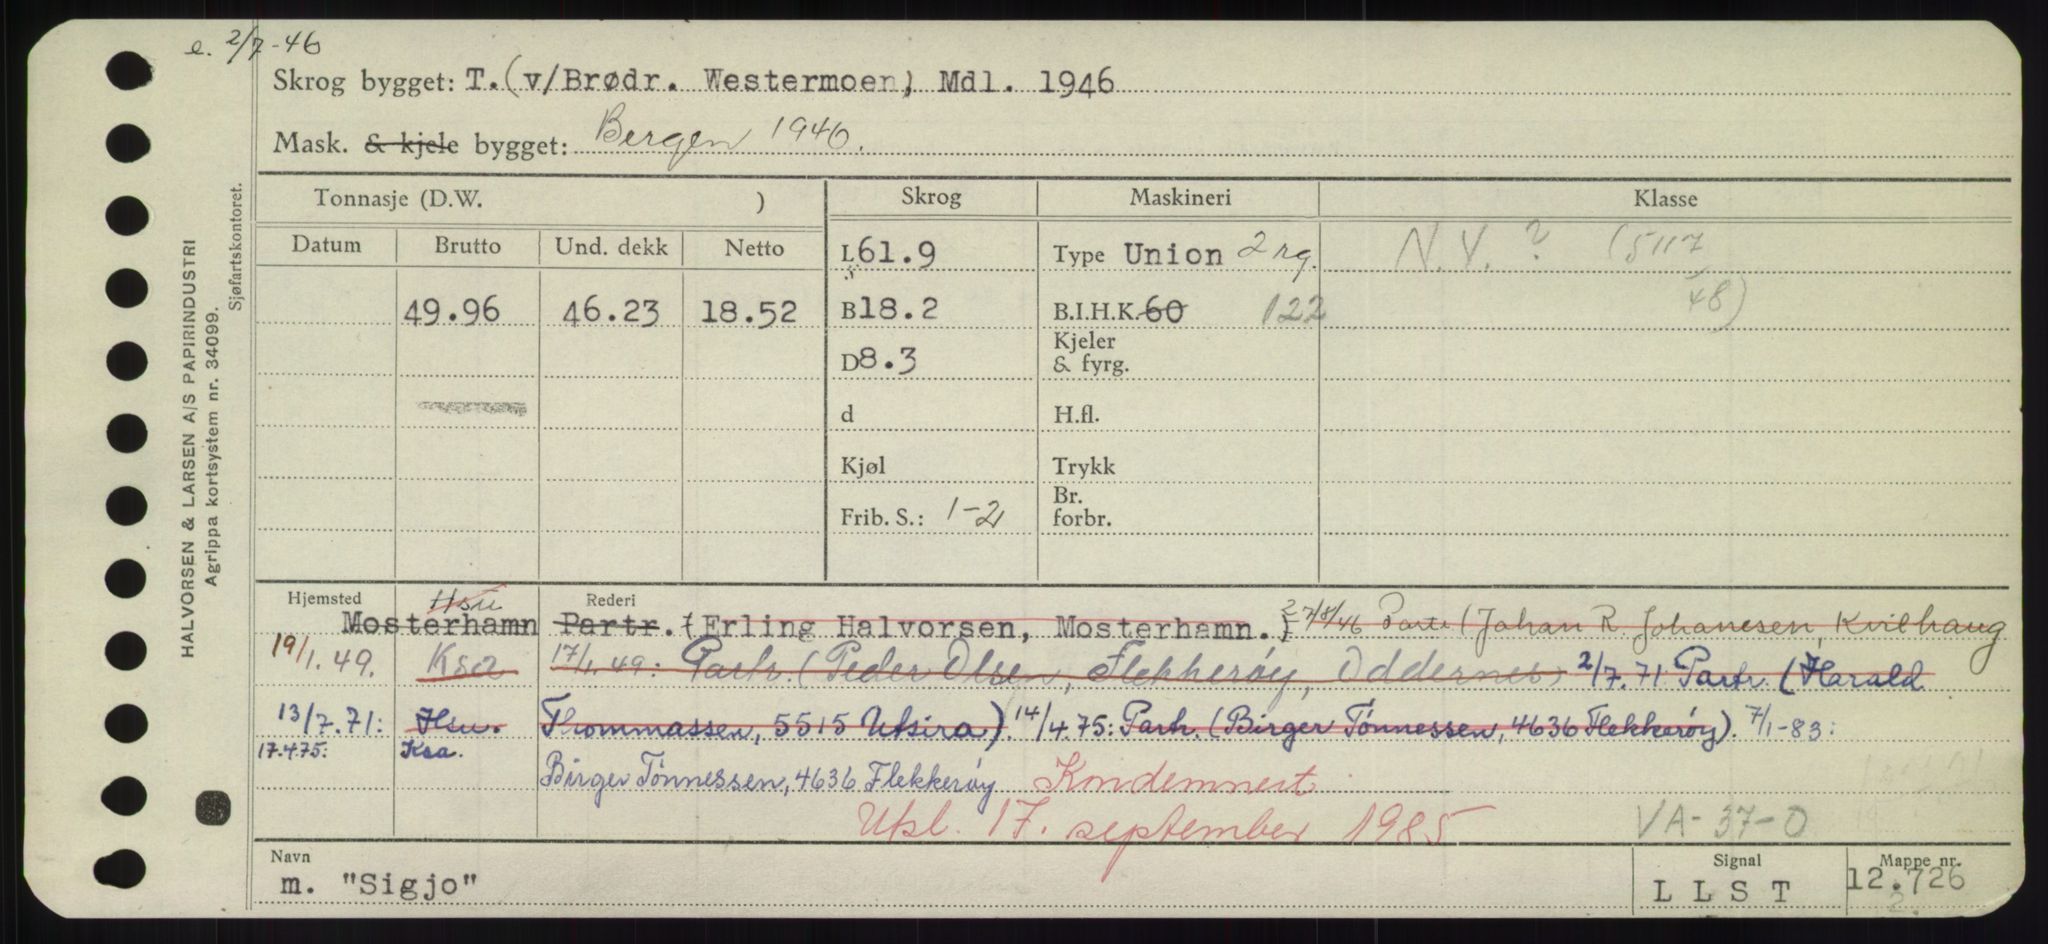 e. 2/7-46
Skrog bygget: T. (v/Brødr. Westermoen, Mdl. 1946
Mask. & kjele bygget: Bergen 1946.
HALVORSEN & LARSEN A/S PAPIRINDUSTRI
Agrippa kortsystem nr. 34099.
Sjøfartskontoret.
Tonnasje (D.W. ) Skrog Maskineri Klasse
Datum Brutto Und. dekk Netto L 61.9 Type Union 2 rg. N.V. ? (5117/48)
49.96 46.23 18.52 B 18.2 B.I.H.K. 60 122
D 8.3 Kjeler & fyrg.
d H.fl.
Kjøl Trykk
Frib. S.: 1-2 Br. forbr.
Hjemsted Hsu Rederi
Mosterhamn Partr. (Erling Halvorsen, Mosterhamn.) 27/8/46 Partr (Johan R. Johanesen, Kvilhaug
19/1.49. Ksa 17/1.49: Partr. (Peder Olsen, Flekkerøy, Oddernes) 2/7.71 Partr. (Harald
13/7.71: Hsu. Thommassen, 5515 Utsira). 14/4.75: Partr. (Birger Tønnessen, 4636 Flekkerøy). 7/1-83:
17.4.75: Ksa. Birger Tønnessen, 4636 Flekkerøy Kondemnert
Utsl. 17. september 1985 VA-37-O
Navn Signal Mappe nr.
m. "Sigjo" L L S T 12.726
2.